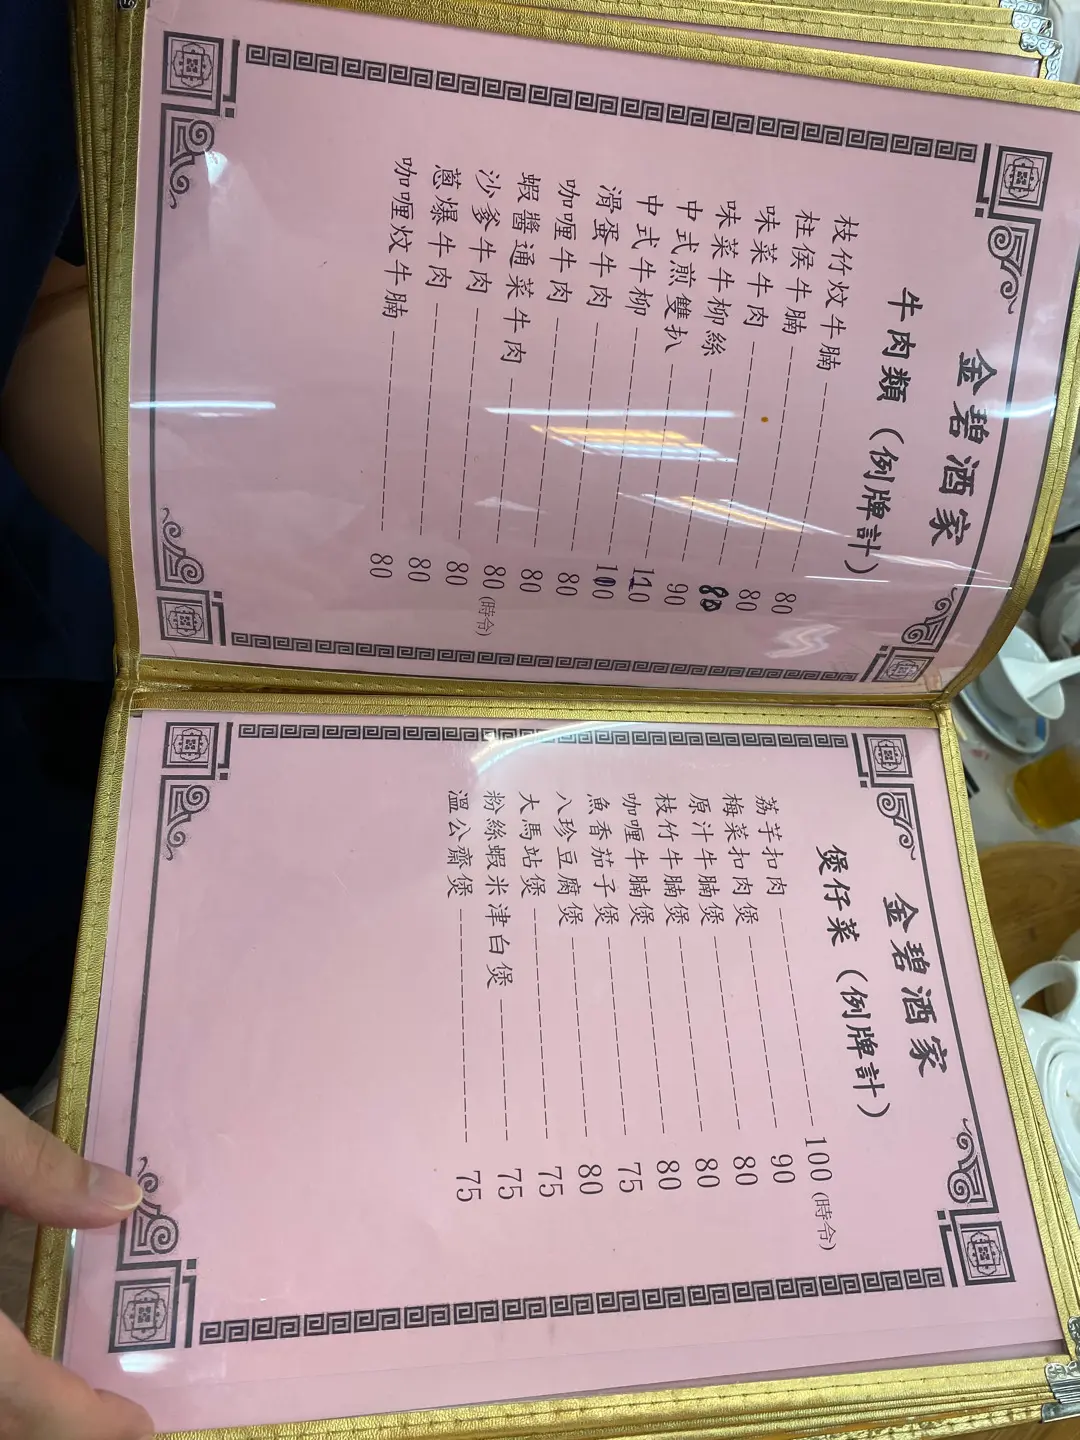 金碧酒家
牛肉類（例牌計）
枝竹炆牛腩 80
柱侯牛腩 80
味菜牛肉 80
味菜牛柳絲 90
中式煎雙扒 110
中式牛柳 100
滑蛋牛肉 80
咖喱牛肉 80
蝦醬通菜牛肉 80 (時令)
沙爹牛肉 80
蔥爆牛肉 80
咖喱炆牛腩 80
金碧酒家
煲仔菜（例牌計）
荔芋扣肉 100 (時令)
梅菜扣肉煲 90
原汁牛腩煲 80
枝竹牛腩煲 80
咖喱牛腩煲 80
魚香茄子煲 75
八珍豆腐煲 80
大馬站煲 75
粉絲蝦米津白煲 75
溫公齋煲 75